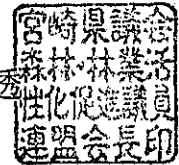 宮崎県議会
森林・林業活
性化促進議員
連盟会長印
秀